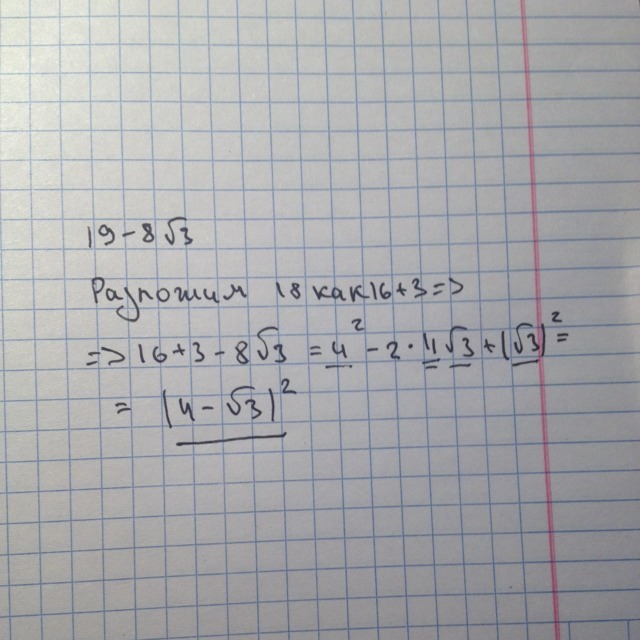 19-8√3
Разложим 18 как 16+3 =>
=> 16+3-8√3 = 4² - 2·4√3 + (√3)² =
= (4-√3)²